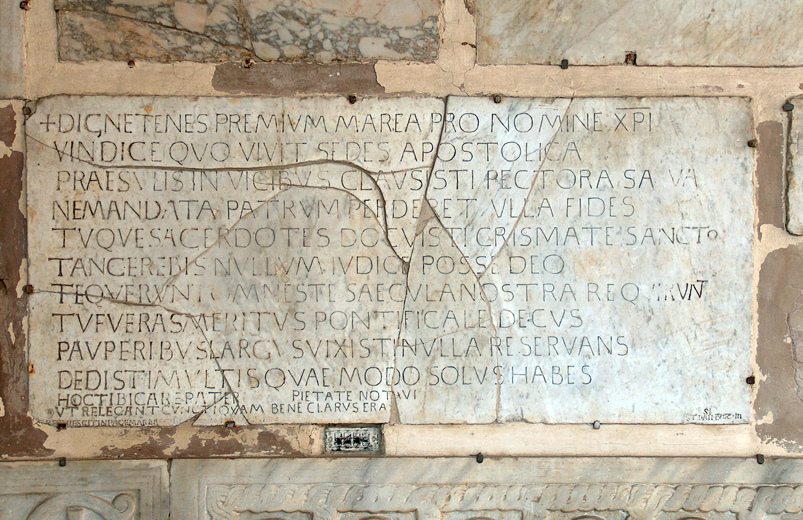 +DIGNE TENES PREMIVM MAREA PRO NOMINE XPI
VINDICE QVO VIVIT SEDES APOSTOLICA
PRAESVLIS IN VICIBVS CLAVSISTI PECTORA SAEVA
NE MANDATA PATRVM PERDERET VLLA FIDES
TVQVE SACERDOTES DOCVISTI CRISMATE SANCTO
TANGERE BIS NVLLVM IVDICE POSSE DEO
TE QVERVNT OMNES TE SAECVLA NOSTRA REQVIRVNT
TV FVERAS MERITVS PONTIFICALE DECVS
PAVPERIBVS LARGVS VIXISTI NVLLA RESERVANS
DEDISTI MVLTIS QVAE MODO SOLVS HABES
HOC TIBI CARE PATER PIETATE NOTAVI
VT RELEGANT CVNCTI QVAM BENE CLARVS ERAS